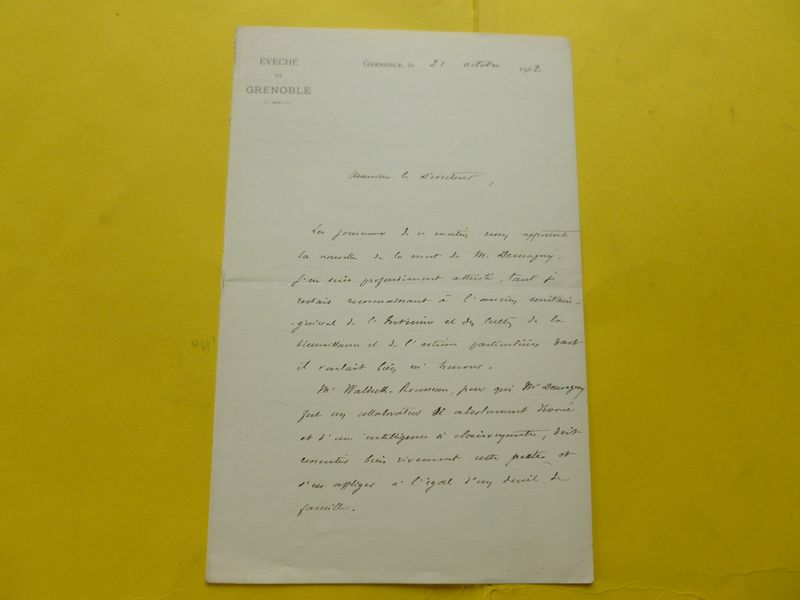 ÉVÊCHÉ
DE
GRENOBLE
GRENOBLE, le 21 octobre 1902
Monsieur le Directeur,
Les journaux de ce matin nous apportent
la nouvelle de la mort de M. Demagny.
J'en suis profondément attristé, tant je
restais reconnaissant à l'ancien secrétaire-
-général de l'Intérieur et des Cultes de la
bienveillance et de l'estime particulières dont
il voulait bien m'honorer.
Mr Waldeck-Rousseau, pour qui Mr Demagny
fut un collaborateur si absolument dévoué
et d'une intelligence si clairvoyante, doit
ressentir bien vivement cette perte, et
s'en affliger à l'égal d'un deuil de
famille.